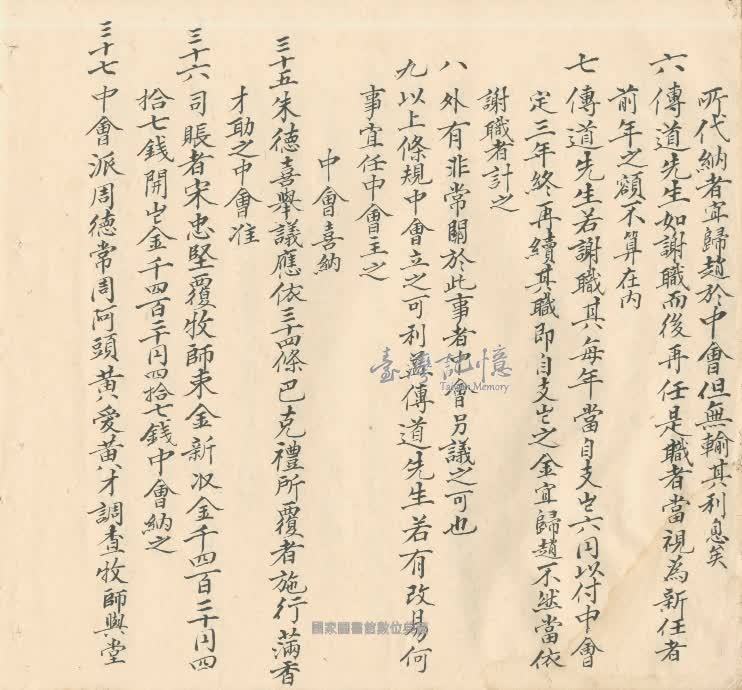 所代納者宜歸趙於中會但無輸其利息矣
六 傳道先生如謝職而後再任是職者當視為新任者
前年之額不算在內
七 傳道先生若謝職其每年當自支出六円以付中會
定三年終再續其職即自支出之金宜歸趙不然當依
謝職者計之
八 外有非常關於此事者中會另議之可也
九 以上條規中會立之可利益傳道先生若有改易何
事宜任中會主之
中會喜納
三十五 朱德喜舉議應依三十四條巴克禮所覆者施行蒲香
才助之中會准
三十六 司賬者宋忠堅覆牧師束金新收金千四百三十円四
拾七錢開出金千四百三十円四拾七錢中會納之
三十七 中會派周德常周阿頭黃愛黃才調查牧師與堂
臺灣記憶
Taiwan Memory
國家圖書館數位典藏